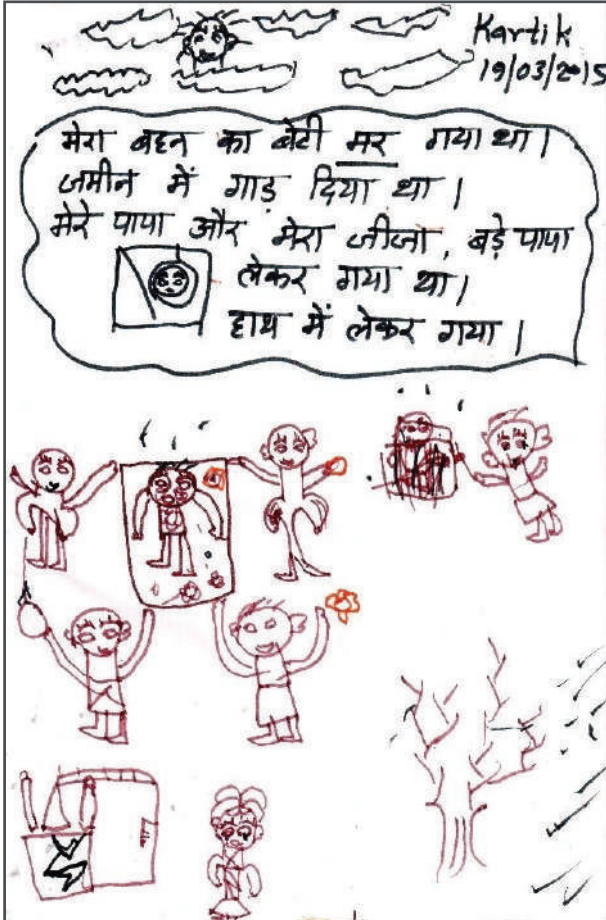 Kartik
19/03/2015
मेरा बहन का बेटी मर गया था।
जमीन में गाड़ दिया था।
मेरे पापा और मेरा जीजा, बड़े पापा
लेकर गया था।
हाथ में लेकर गया।